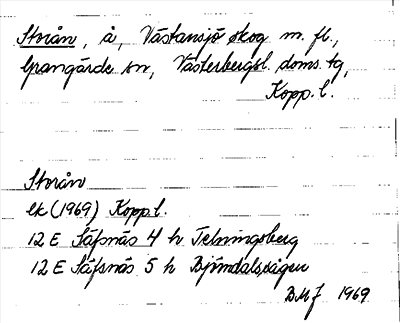 Storån, å, Västansjö skog m. fl.,
Grangärde sn, Västerbergsl. doms. tg,
Kopp. l.
Storån
ek (1969) Kopp. l.
12 E Säfsnäs 4 h Telningsberg
12 E Säfsnäs 5 h Björndalsvägen
BMJ 1969